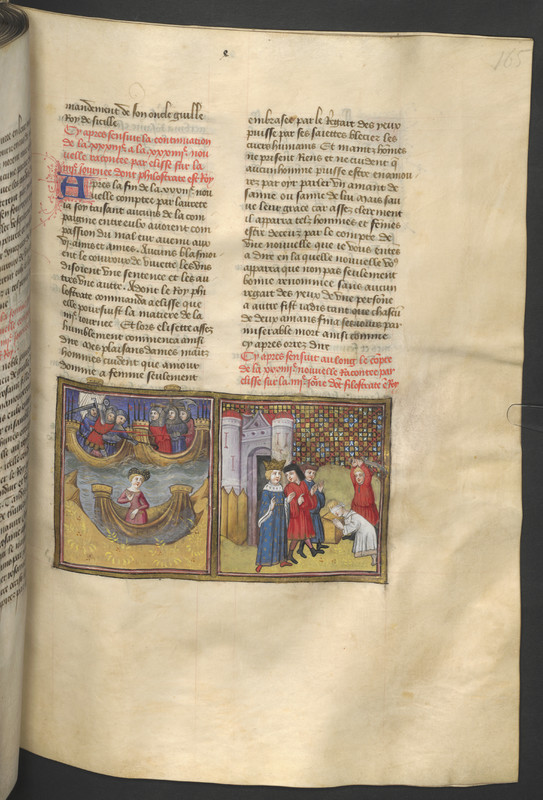 165
e
mandement de son oncle guille
Roy de sicille
Cy apres sensuit la continuation
de la xxxiiiᵉ a la xxxiiiiᵉ nou
uelle racontee par elisse sur la
iiiiᵉ Journee dont philostrate est Roy
Apres la fin de la xxxiiiᵉ nou
uelle comptee par laurete
la soy taisant aucuns de la com
paignie entre eulx auoient com
passion du mal eur auenu aux
amis et amies. Aucuns blasmoi
ent le courroux de les vns
disoient vne sentence et les au
tres vne autre. Adont le Roy phi
lostrate commanda a elisse que
elle poursuist la matiere de la
iiiiᵉ journee. Et lors elisette assez
humblement commenca ainsi
dire. Mes plaisans dames maintz
hommes cuident que amour
donne a femme seulement
embrases par le Regart des yeux
puisse par ses saiettes blecier les
cuers humains. Et maintz hommes
ne pensent Riens et ne cuident que
aucun homme puisse estre enamou
rez par oyr parler vn amant de
sa mie ou samie de lui mais sau
ue leur grace car assez clerement
il apparra telz hommes et femmes
estre deceuz par le compte de
vne nouuelle que ie vous entes
a dire en laquelle nouuelle vous
apparra que non pas seulement
bonne renommee sans aucun
regart des yeux de vne personne
a autre fist iadis tant que chascun
de deux amans fina ses iours par
miserable mort ainsi comme
cy apres orrez dire
Cy apres sensuit au long le compte
de la xxxiiiiᵉ nouuelle Racontee par
elisse sur la iiiiᵉ Jornee dont filostrate est Roy